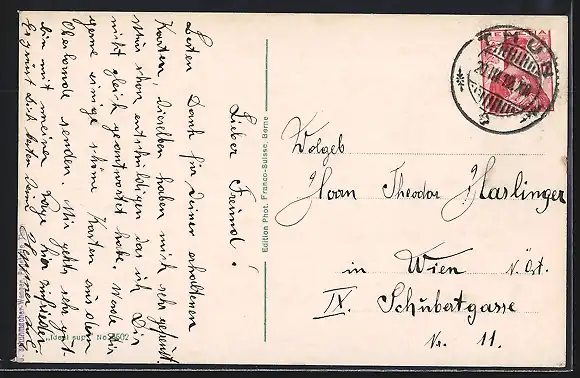 Lieber Freund!
Besten Dank für Deiner erhaltenen
Karten, dieselben haben mich sehr gefreut.
Mus schon entschuldigen das ich Dir
nicht gleich geantwortet habe. Werde Dir
gerne einige schöne Karten aus dem
Oberlande senden. Mir geht's sehr gut
bin mit meiner Lage zufrieden.
Es grüsst Dich bestens Dein
Edition Phot. Franco-Suisse, Berne
"Ideal sup." No. 3602
HELVETIA
THUN
Wolgeb
Herrn Theodor Harlinger
in Wien N. Öst.
IX. Schubertgasse
Nr. 11.